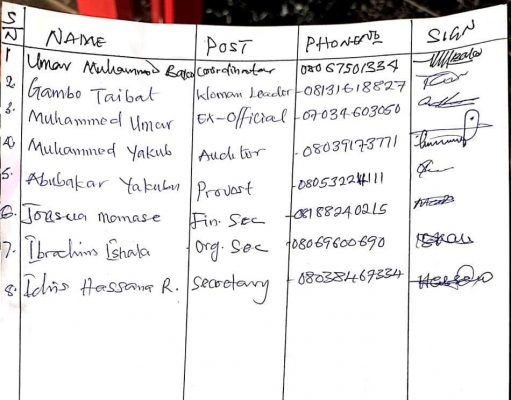 S/N NAME POST PHONE NO SIGN
1 Umar Muhammad Baba Coordinator 08067501334
2. Gambo Taibat Woman Leader - 08131618827
3. Muhammed Umar Ex-Official - 07034603050
4. Muhammed Yakub Auditor - 08039173771
5. Abubakar Yakubu Provost - 08053224111
6. Joasua momase Fin. Sec - 08188240215
7. Ibrahim Ishala Org. Sec - 08069600690
8. Idris Hassana R. Secretary - 08038469334